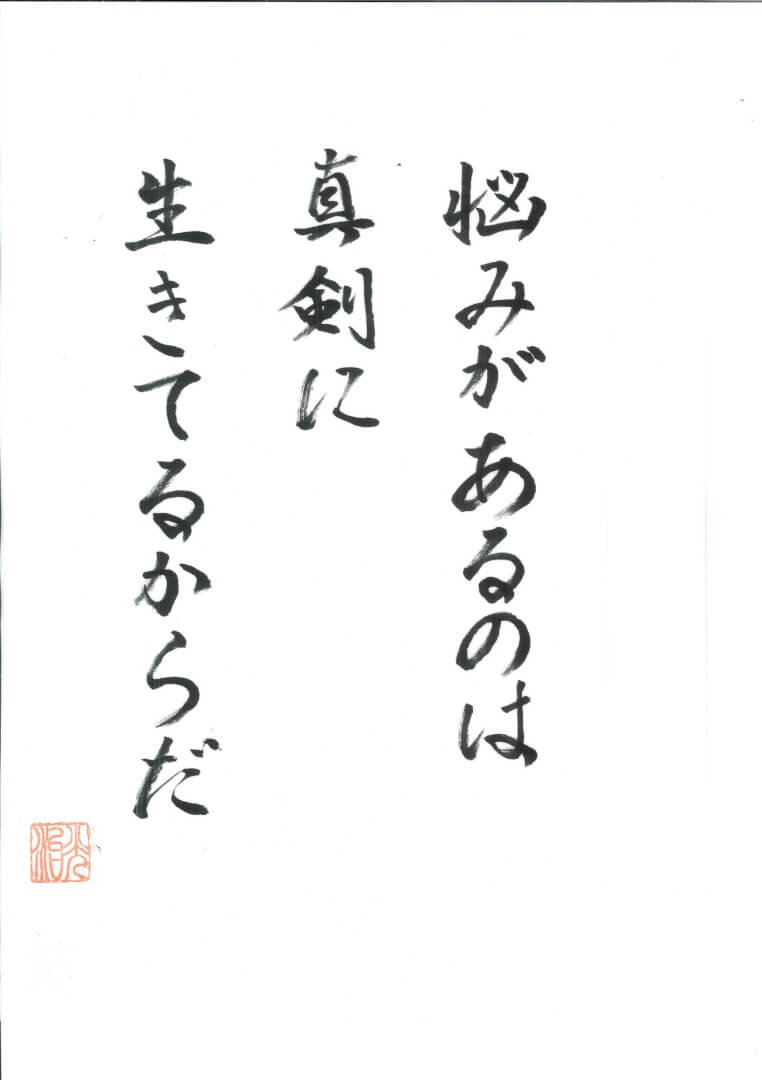 悩みがあるのは
真剣に
生きてるからだ